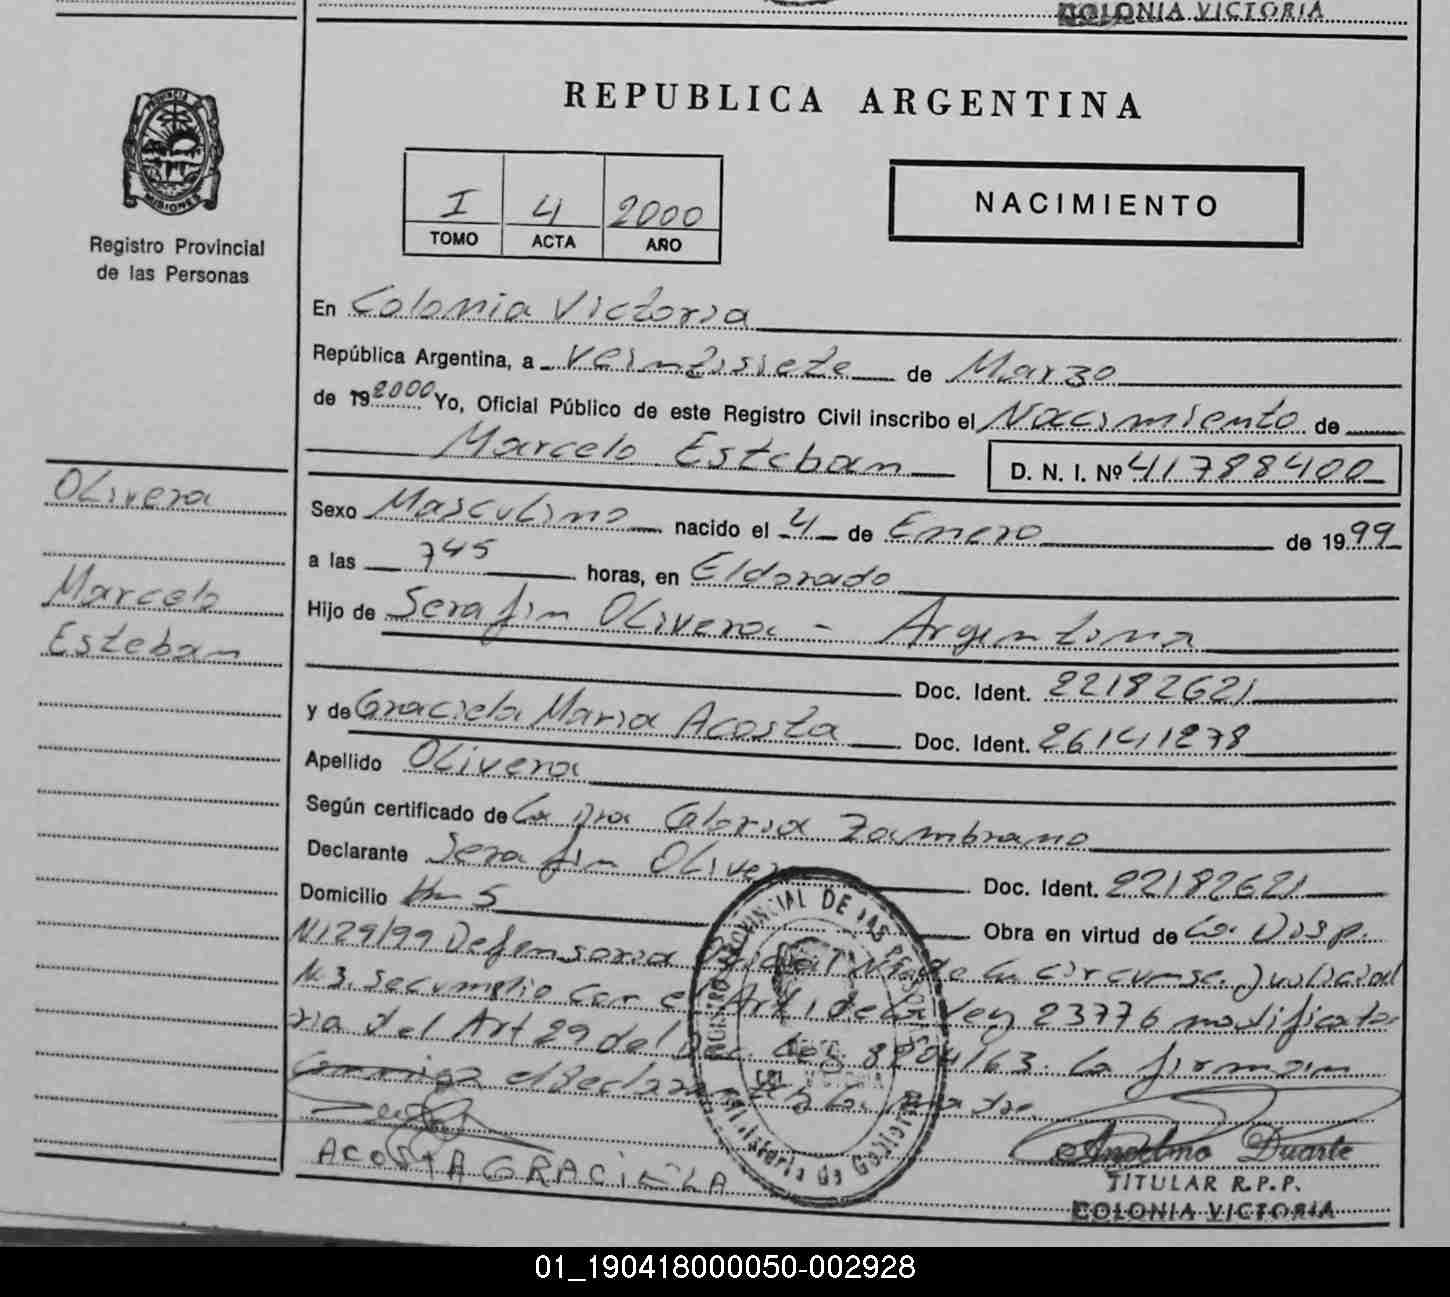 COLONIA VICTORIA
REPUBLICA ARGENTINA
PROVINCIA DE
MISIONES
Registro Provincial
de las Personas
I 4 2000
TOMO ACTA AÑO
NACIMIENTO
En Colonia Victoria
República Argentina, a veintisiete de Marzo
de 19 2000 Yo, Oficial Público de este Registro Civil inscribo el Nacimiento de
Marcelo Esteban D. N. I. Nº 41788400
Olivera
Marcelo
Esteban
Sexo Masculino nacido el 4 de Enero de 1999
a las 745 horas, en Eldorado
Hijo de Serafin Olivera - Argentina
Doc. Ident. 22182621
y de Graciela Maria Acosta Doc. Ident. 26141278
Apellido Olivera
Según certificado de La Dra Gloria Zambrano
Declarante Serafin Oliver Doc. Ident. 22182621
Domicilio Km 5 Obra en virtud de La Disp.
N129/99 Defensoria de la circunsc. Judicial
N3. Se cumplio con el Art 1 de la Ley 23776 modificato-
ria del Art 29 del Dec. Ley 8204/63. La firman
conmigo el Declarante y la madre
ACOSTA GRACIELA
REGISTRO PROVINCIAL DE LAS PERSONAS
Ministerio de Gobierno
Anselmo Duarte
TITULAR R.P.P.
COLONIA VICTORIA
01_190418000050-002928